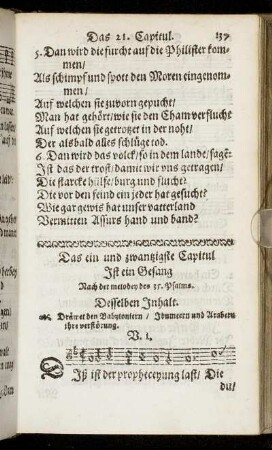 Das 21. Capitul. 137
5. Dan wird die furcht auf die Philister kom-
men/
Als schimpf und spott den Moren eingenom-
men/
Auf welchen sie zuvorn gepucht/
Man hat gehört/wie sie den Cham verflucht
Auf welchen sie getrotzet in der noht/
Der alsbald alles schlüge tod.
6. Dan wird das volck/so in dem lande/sagẽ:
Ist das der trost/damit wir uns getragen/
Die starcke hülfe/burg und flucht?
Die vor den feind ein jeder hat gesucht?
Wie gar gewis hat unser vatterland
Vermitten Assurs hand und band?
Das ein und zwantzigste Capitul
Ist ein Gesang
Nach der melodey des 35. Psalms.
Desselben Inhalt.
Dräwet den Babyloniern / Idumeern und Arabern
ihre verstörung.
V. 1.
Diß ist der propheceyung last/ Die
du/